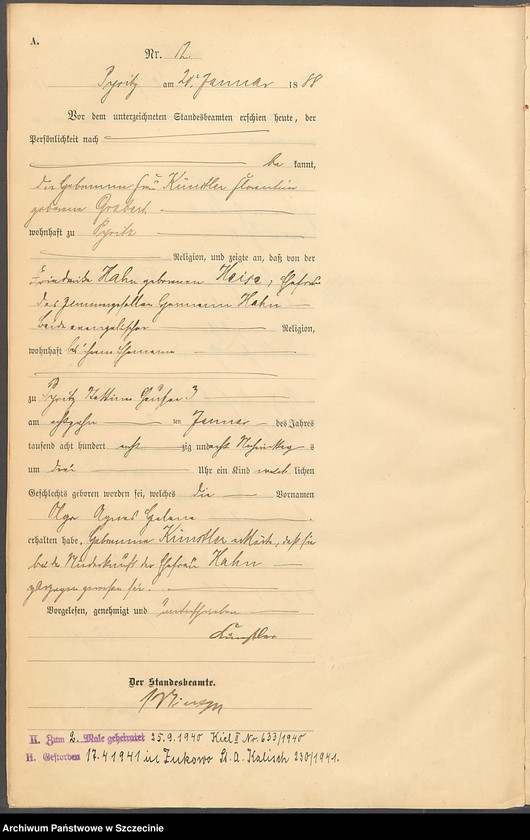 A.
Nr. 12
Pyritz am 20. Januar 1888
Vor dem unterzeichneten Standesbeamten erschien heute, der
Persönlichkeit nach
be kannt,
die Hebamme Frau Künstler Florentin
geborene Grabert
wohnhaft zu Pyritz
Religion, und zeigte an, daß von der
Friederike Hahn geborenen Heise, Ehefrau
des Zimmergesellen Hermann Hahn
beide evangelischer Religion,
wohnhaft bei ihrem Ehemanne
zu Pyritz Stettiner Häuser 3
am achtzehn ten Januar des Jahres
tausend acht hundert acht zig und acht Nachmittags
um drei Uhr ein Kind weib lichen
Geschlechts geboren worden sei, welches die Vornamen
Olga Agnes Helene
erhalten habe. Hebamme Künstler erklärte, daß sie
bei der Niederkunft der Ehefrau Hahn
zugegen gewesen sei.
Vorgelesen, genehmigt und unterschrieben
Künstler
Der Standesbeamte.
H. Zum 2. Male geheiratet 25.9.1940 Kiel II Nr. 633/1940
H. Gestorben 17.4.1941 in Zukowo St. A. Kalisch 230/1941.
Archiwum Państwowe w Szczecinie